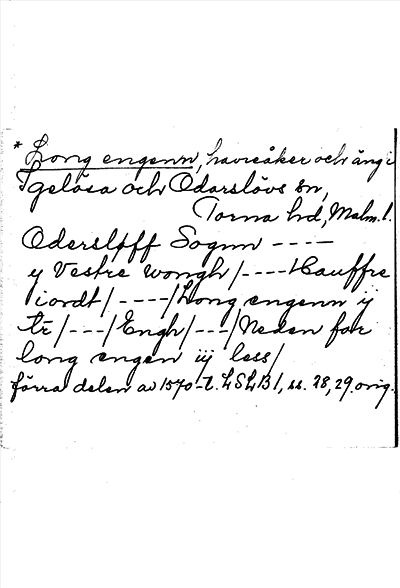 * Long engenn, havreåker och äng i
Igelösa och Odarslövs sn,
Torna hd, Malm. l.
Odersløff Sognn ----
y Vestre wongh/----/Hauffre
iordt/----/Long engenn ij
tr/---/Engh/---/Neden for
long engen iij less/
förra delen av 1570-t. LSLB1, ss. 28, 29. orig.